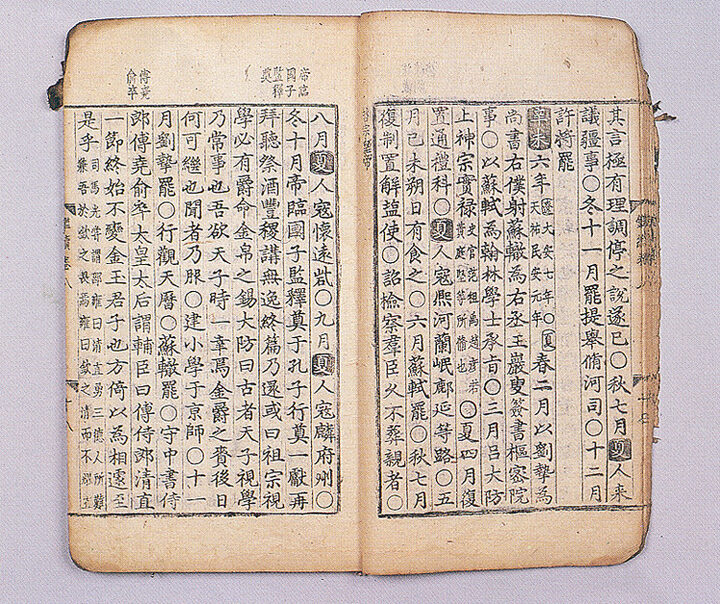 其言極有理調停之說遂已○秋七月夏人來
議疆事○冬十一月罷提舉脩河司○十二月
許將罷
辛未六年遼大安七年○夏天祐民安元年春二月以劉摯為
尚書右僕射蘇轍為右丞王巖叟簽書樞密院
事○以蘇軾為翰林學士承旨○三月呂大防
上神宗實祿史官范祖禹趙彦若黃庭堅等所脩也○夏四月復
置通禮科○夏人寇熙河蘭岷鄜延等路○五
月己未朔日有食之○六月蘇軾罷○秋七月
復制置解塩使○詔檢察羣臣久不葬親者○
帝臨
國子
監釋
奠
八月夏人寇懷遠砦○九月夏人寇麟府州○
冬十月帝臨國子監釋奠于孔子行奠一獻再
拜聽祭酒豐稷講無逸終篇乃還或曰祖宗視
學必有爵命金帛之錫大防曰古者天子視學
乃常事也吾欲天子時一幸焉金爵之賚後日
何可繼也聞者乃服○建小學于京師○十一
月劉摯罷○行觀天曆○蘇轍罷○守中書侍
傅堯
俞卒
郎傅堯俞卒太皇太后謂輔臣曰傅侍郎清直
一節終始不變金玉君子也方倚以為相遽至
是乎司馬光嘗謂邵雍曰清直勇三德人所難兼吾於欽之畏焉雍曰欽之清而不耀直